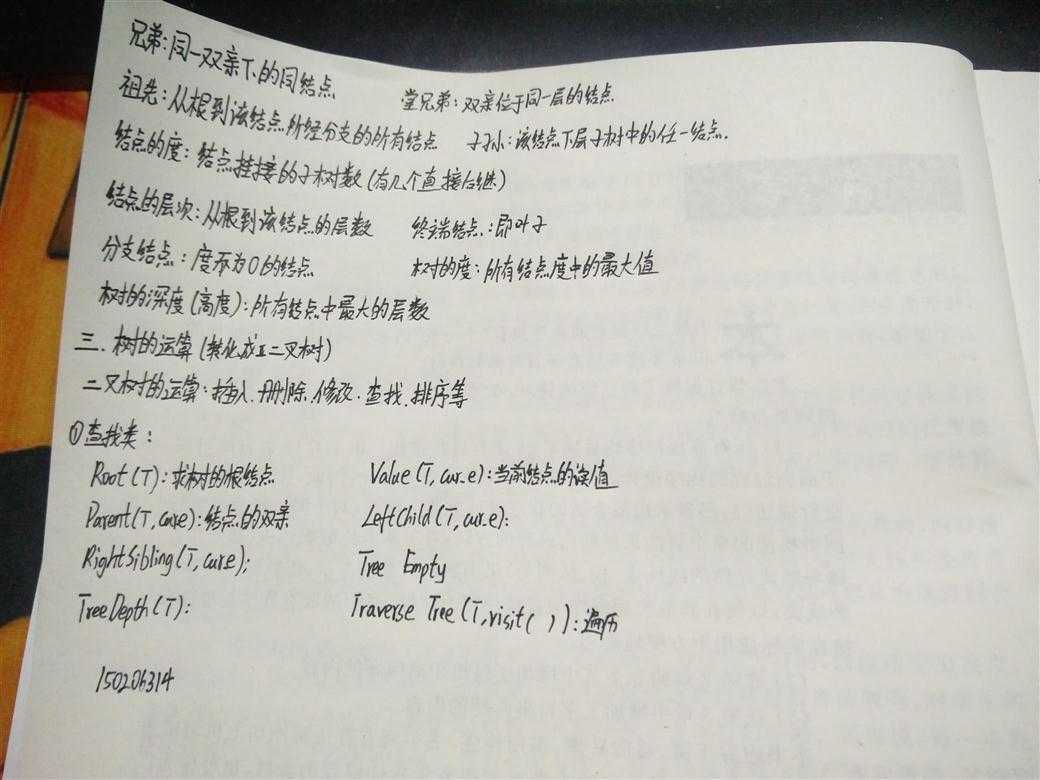 兄弟:同一双亲下的同结点
祖先:从根到该结点所经分支的所有结点 堂兄弟:双亲位于同一层的结点
结点的度:结点挂接的子树数(有几个直接后继) 子孙:该结点下层子树中的任一结点.
结点的层次:从根到该结点的层数 终端结点:即叶子
分支结点:度不为0的结点 树的度:所有结点度中的最大值
树的深度(高度):所有结点中最大的层数
三.树的运算(转化成二叉树)
二叉树的运算:插入.删除.修改.查找.排序等
①查找类:
Root(T):求树的根结点 Value(T,cur_e):当前结点的值
Parent(T,cur_e):结点的双亲 LeftChild(T,cur_e):
RightSibling(T,cur_e); Tree Empty
TreeDepth(T): Traverse Tree(T,visit( )):遍历
150206314